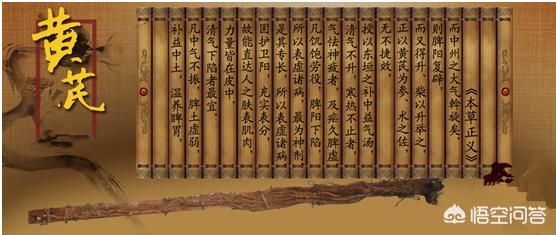 黄芪
补益中土，温养脾胃，
凡中气不振，脾土虚弱，
清气下陷者最宜。
力量皆在皮中，
故能直达人之肤表肌肉，
固护卫阳，充实表分，
是其专长，所以表虚诸病，
所以表虚诸病，最为神剂
凡饥饱劳役，脾阳下陷
气怯神疲者，及疟久脾虚
清气不升，寒热不止者，
授以东垣之补中益气汤，
无不捷效，
正以黄芪为参、术之佐，
而又得升、柴以升举之，
则脾阳复辟，
而中州之大气斡旋矣。
《本草正义》
悟空问答